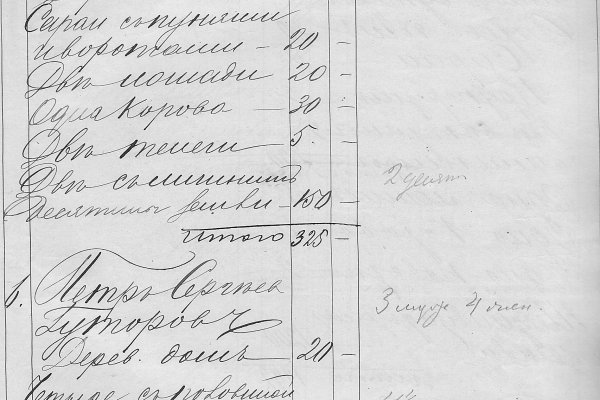 Сараи съ пунями
и воротами — 20 —
Двѣ лошади 20 —
Одна Корова — 30 —
Двѣ телеги 5. —
Двѣ съ
Десятины земли — 150 — 2 десят
Итого 325 —
6. Петръ Сергѣев
Гуторовъ 3 муж 4 жен.
Дерев. домъ — 20 —